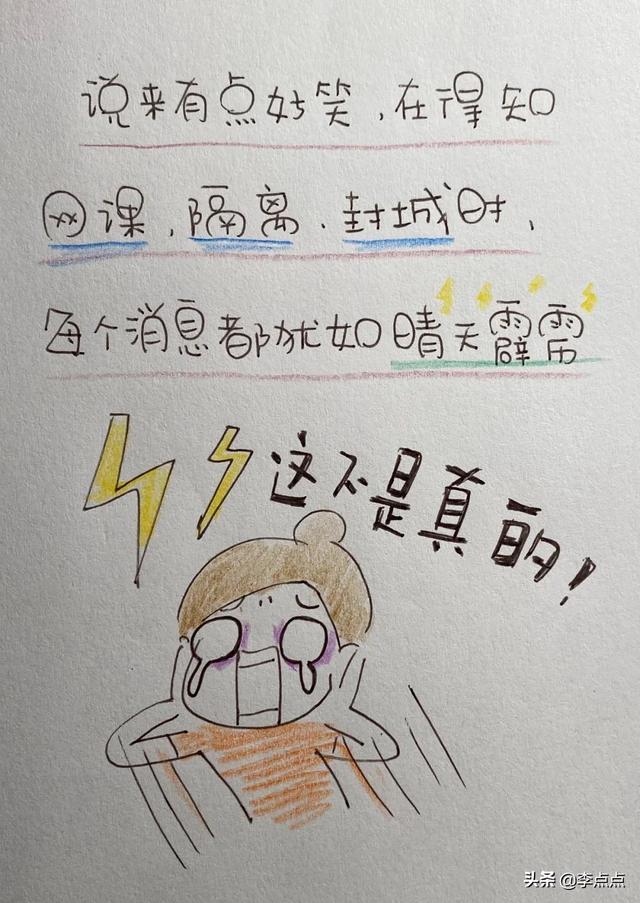 说来有点好笑,在得知
网课,隔离、封城时,
每个消息都犹如晴天霹雳
这不是真的!
头条 @李点点